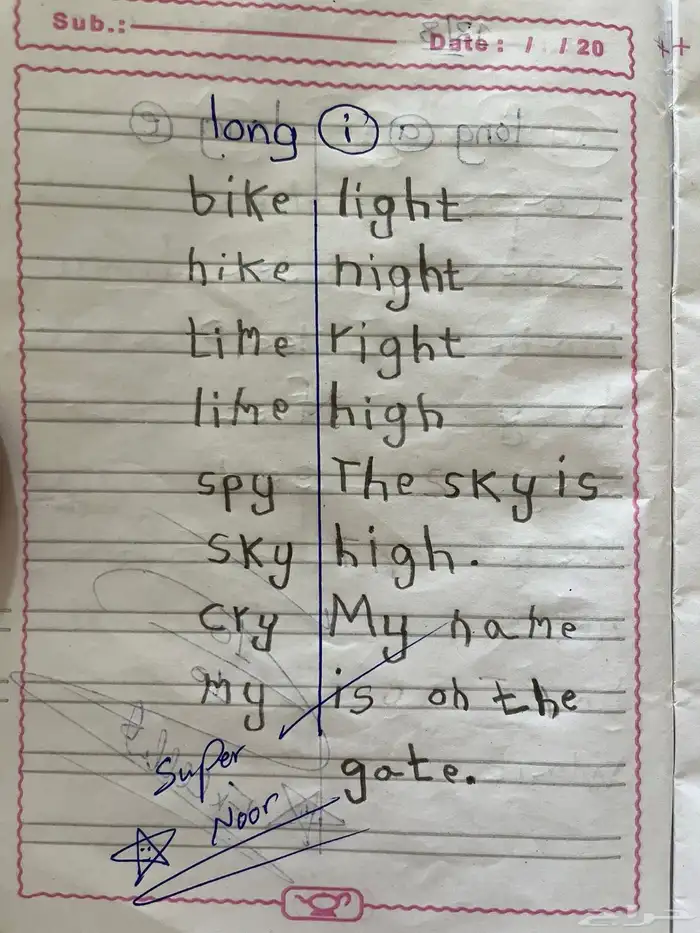 Sub.: Date: / / 20
long i
bike light
hike night
time right
line high
spy The sky is
sky high.
cry My name
my is on the
gate.
Super
Noor